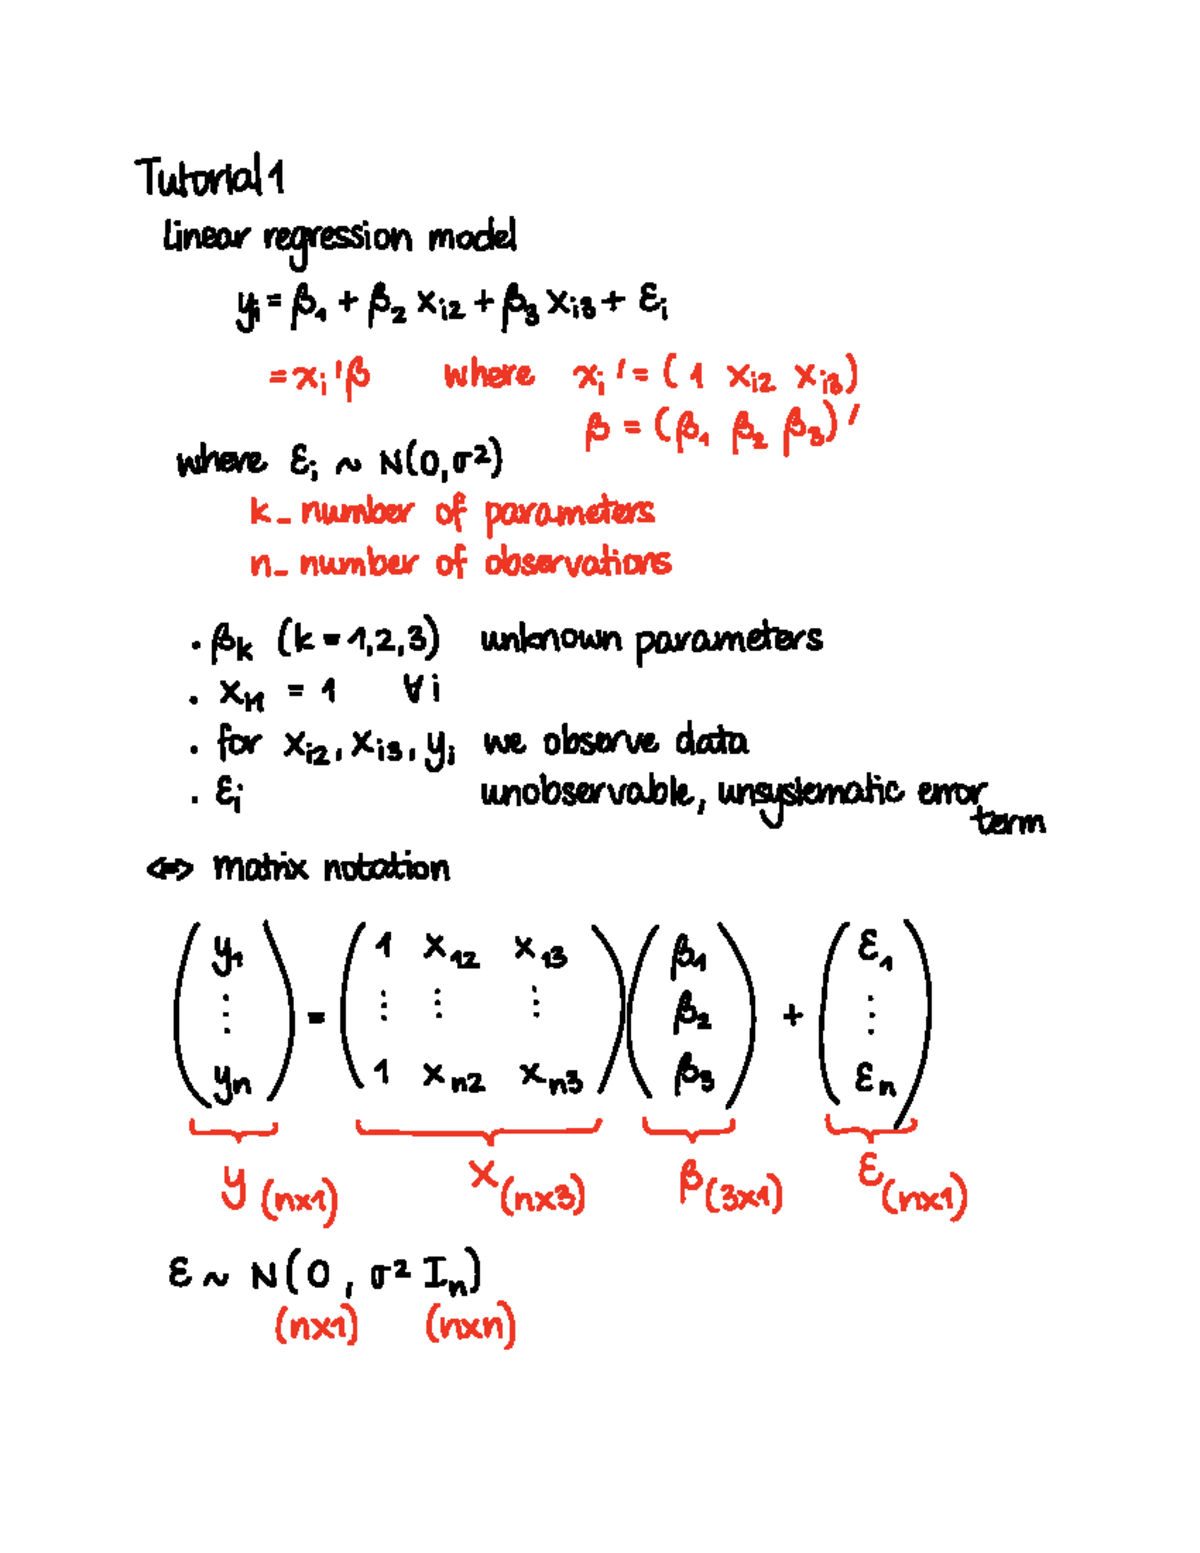 Tutorial 1
linear regression model
yᵢ = β₁ + β₂ xᵢ₂ + β₃ xᵢ₃ + εᵢ
= xᵢ'β where xᵢ' = ( 1 xᵢ₂ xᵢ₃)
β = (β₁ β₂ β₃)'
where εᵢ ~ N(0,σ²)
k - number of parameters
n - number of observations
. βₖ (k = 1,2,3) unknown parameters
. xᵢ₁ = 1 ∀ i
. for xᵢ₂, xᵢ₃, yᵢ we observe data
. εᵢ unobservable, unsystematic error
term
<=> matrix notation
y₁ 1 x₁₂ x₁₃ β₁ ε₁
⋮ = ⋮ ⋮ ⋮ β₂ + ⋮
yₙ 1 xₙ₂ xₙ₃ β₃ εₙ
y (nx1) x (nx3) β (3x1) ε (nx1)
ε ~ N(0, σ² Iₙ)
(nx1) (nxn)